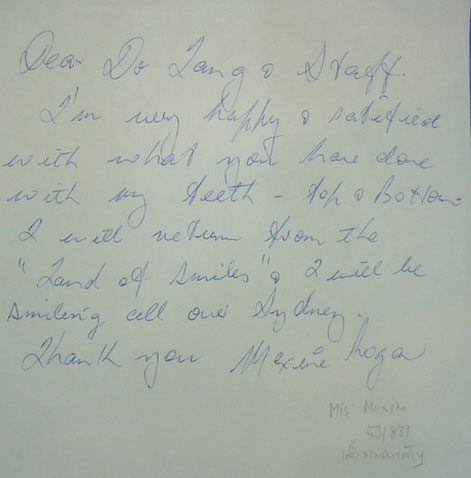 Dear Dr Lang & Staff.
I'm very happy & satified
with what you have done
with my teeth - top & Bottom
I will return from the
"Land of smiles" & I will be
smiling all over Sydney.
Thank you Maxine
Mis Maxine
53/83/